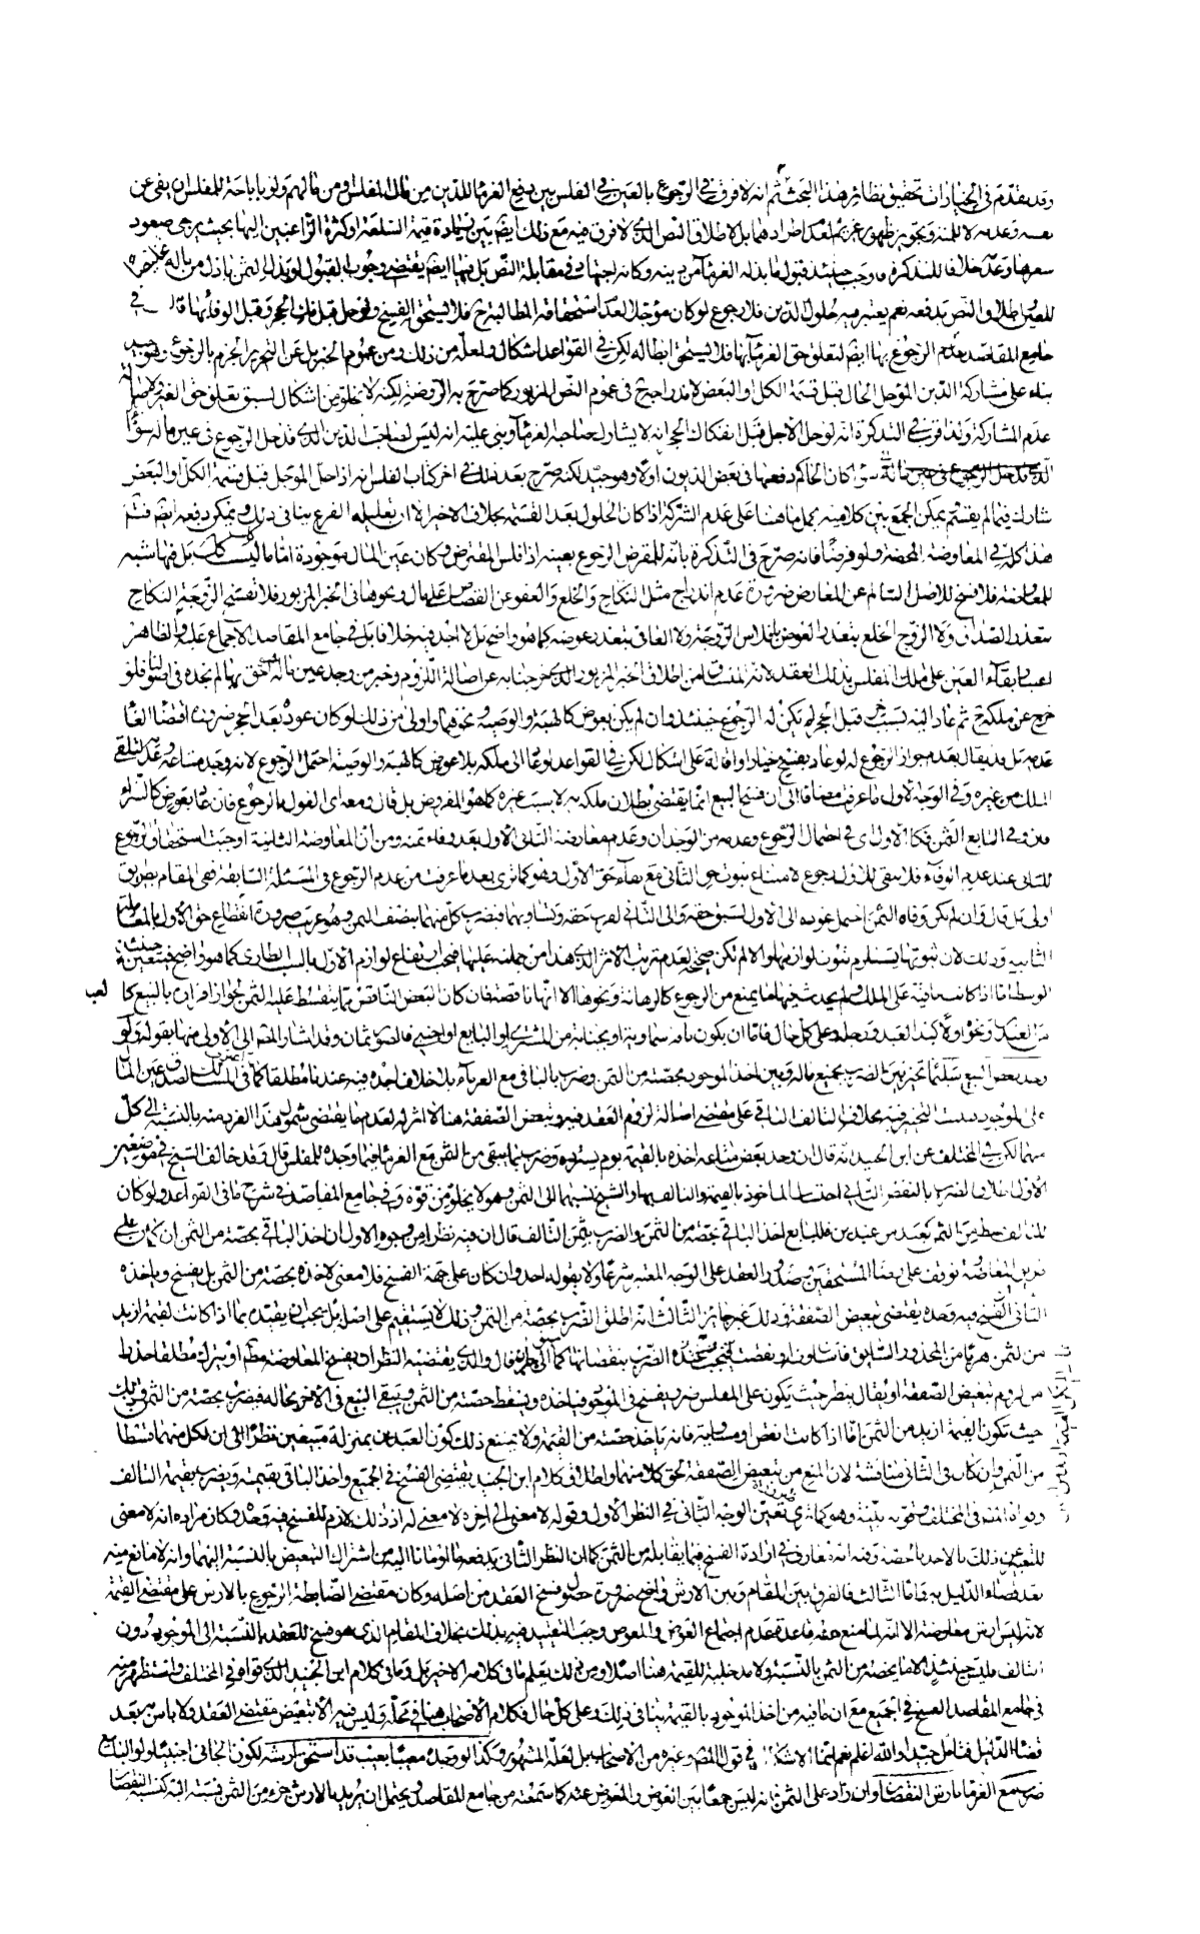 وقد تقدم في الخيارات تحقيق نظائر هذا البحث ثم انه لا فرق في الرجوع بالعين في الفلس بين دفع الغرماء للدين من مال المفلس او من مالهم ولو باباحة للمفلس ان يفي عن
نفسه وعدمه للمنة وتجويز ظهور غريم لعدم اطرادهما بل لاطلاق النص الذي لا فرق فيه مع ذلك ايضا بين زيادة قيمة السلعة او كثرة الراغبين اليها بحيث يرجى صعود
سعرها وعدمه خلافا للتذكرة فاوجب حينئذ قبول ما بذله الغرماء من دينه وكانه اجتهاد في مقابلة النص بل فيها ايضا يقتضي وجوب القبول لو بذل الثمن باذل من ماله
اطلاق النص يدفعه نعم يعتبر فيه حلول الدين فلا رجوع لو كان مؤجلا لعدم استحقاقه المطالبة ح فلا يستحق الفسخ ولو حل قبل فك الحجر وقبل الوفاء بها قال في
جامع المقاصد عدم الرجوع بها ايضا لتعلق حق الغرماء بها فلا يستحق ابطاله لكن في القواعد اشكال ولعله من ذلك ومن عموم الخبر بل عن التحرير الجزم بالرجوع
بناء على مشاركة الدين المؤجل الحال قبل قسمة الكل او البعض لاندراجه في عموم النص المزبور كما صرح به في الروضة لكنه لا يخلو من اشكال لسبق تعلق حق الغير
عدم المشاركة وقد افر في التذكرة انه لو حل الاجل قبل انفكاك الحجر انه لا يشارك صاحبه الغرماء وبنى عليه انه ليس لصاحب الدين الذي قد حل الرجوع في عين ماله سواء
سواء كان الحاكم دفعها في بعض الديون اولا وهو جيد لكنه صرح بعد ذلك في اخر كتاب الفلس انه اذا حل المؤجل قبل قسمة الكل او البعض
شارك فيما لم يقسم يمكن الجمع بين كلاميه بحمل ما هنا على عدم الشركة اذا كان الحلول بعد القسمة بخلاف الاخير الا ان تعليله الفرع ينافي ذلك ويمكن دفعه ايضا
هذا كله في المعاوضة المحضة ولو قرضا فانه صرح في التذكرة بانه للمقرض الرجوع بعينه اذا فلس المقترض وكان عين المال موجودة اما ما ليس كك بل فيها شبه
المعاوضة فلا فسخ للاصل السالم عن المعارض ضرورة عدم اندراج مثل النكاح والخلع والعفو عن القصاص على مال ونحوها في الخبر المزبور فلا تفسخ الزوجة النكاح
بتعذر الصداق ولا الزوج الخلع بتعذر العوض بافلاس الزوجة ولا العافي بتعذر عوضه كما هو واضح بل لا اجد فيه خلافا بل في جامع المقاصد الاجماع عليه والظاهر
اعتبار بقاء العين على ملك المفلس بذلك العقد لانه المنساق من اطلاق الخبر المزبور الذي خرجنا به عن اصالة اللزوم وخبر من وجد عين ماله فهو احق بها لم نجده في اصولنا فلو
خرج عن ملكه ثم عاد اليه بسبب اخر قبل الحجر لم يكن له الرجوع حينئذ وان لم يكن بعوض كالهبة والوصية ونحوهما واولى من ذلك لو كان عوده بعد الحجر ضرورة اقتضاء الغاء
عدمه بل قد يقال بعدم جواز الرجوع له لو عاد بفسخ خيار او اقالة على اشكال لكن في القواعد لو عاد الى ملكه بلا عوض كالهبة والوصية احتمل الرجوع لانه وجد متاعه وعدمه لتلقي
الملك من غيره وفي الوجه الاول ما عرفت مضافا الى ان فسخ البيع انما يقتضي بطلان ملكه به لا بسبب غيره كما هو المفروض بل قال ومعه اي القول بالرجوع فان عاد بعوض كالشراء
فان وفى البايع الثمن فكالاول اي في احتمال الرجوع وعدمه من الوجدان وعدم معارضة الثاني الاول بعد وفاء ثمنه ومن ان المعاوضة الثانية اوجبت استحقاق الرجوع
للثاني عند عدم الوفاء فلا يبقى للاول رجوع لامتناع ثبوت حق الثاني مع بقاء حق الاول وهو كما ترى بعد ما عرفت من عدم الرجوع في المسئلة السابقة ففي المقام بطريق
اولى بل قال وان لم يكن وفاه الثمن احتمل عوده الى الاول لسبق حقه والى الثاني لقرب حقه وتساويهما فيضرب كل منهما بنصف الثمن وهو غريب ضرورة انقطاع حق الاول بالمعاملة
الثانية وذلك لان ثبوتها يستلزم ثبوت لوازمها والا لم تكن صحيحة لعدم ترتب الاثر الذي هذا من جملته عليها فيجب ارتفاع لوازم الاول بالسبب الطاري كما هو واضح فتعين حينئذ
الوسط اما اذا كانت باقية على الملك ولم يحدث فيها ما يمنع من الرجوع كالرهانة ونحوها الا انها ناقصة فان كان البعض الناقص مما يتقسط عليه الثمن لجواز افراده بالبيع كا لعبد
من العبدين ونحوه اولا كيد العبد ورجله وعلى كل حال فاما ان يكون بافة سماوية او بجناية من المشتري او البايع او اجنبي فالصور ثمان وقد اشار المصنف الى الاولى منها بقوله ولو
وجد بعض المبيع سليما تخير بين الضرب بجميع ماله وبين اخذ الموجود بحصته من الثمن وضرب بالباقي مع الغرماء بلا خلاف اجده فيه عندنا مطلقا لصدق عين المال
على الموجود فيثبت التخيير فيه بخلاف التالف الباقي على مقتضى اصالة لزوم العقد فيه وتبعض الصفقة هنا لا اثر له لعدم ما يقتضي شمول هذا الفرد منه بالنسبة الى كل
منهما لكن في المختلف عن ابن الجنيد انه قال ان وجد بعض متاعه اخذه بالقيمة يوم يسترده وضرب بما يبقى من الثمن مع الغرماء فيما وجده للمفلس قال وقد خالف الشيخ في موضعين
الاول اطلاق الضرب بالنقص الثاني احتساب الماخوذ بالقيمة والتالف بها والشيخ نسبهما الى الثمن وهو لا يخلو من قوة وفي جامع المقاصد في شرح ما في القواعد ولو كان
للتالف قسط من الثمن كعبد من عبدين فللبايع اخذ الباقي بحصته من الثمن والضرب بثمن التالف قال ان فيه نظرا من وجوه الاول ان اخذ الباقي بحصته من الثمن ان كان على
طريق المعاوضة توقف على رضا المستحقين وصدور العقد على الوجه المعتبر شرعا ولا يقوله احد وان كان على جهة الفسخ فلا معنى لاخذه بحصته من الثمن بل يفسخ وياخذه
الثاني الفسخ فيه وحده يقتضي تبعيض الصفقة وذلك غير جائز الثالث انه اطلق الضرب بحصته من الثمن وذلك لا يستقيم على اصله بل يجب ان يقيده بما اذا كانت القيمة ازيد
من الثمن هربا من المحذور السابق فان تساويا او نقصت القيمة فيجب الضرب بنقصانها كما قال والذي يقتضيه النظر ان يفسخ المعاوضة او يترك مطلقا حذرا
من لزوم تبعيض الصفقة او يقال ينظر حيث يكون على المفلس ضرر ويفسخ في الموجود فياخذه ويسقط حصته من الثمن ويبقى البيع في الاخر بحاله فيضرب بحصته من الثمن وذلك
حيث تكون القيمة ازيد من الثمن اما اذا كانت انقص او مساوية فانه ياخذ حصته من القيمة ولا يمتنع ذلك كون العبدين بمنزلة مبيعين نظرا الى ان لكل منهما قسطا
من الثمن وان كان في الثاني مناقشة لان المنع من تبعيض الصفقة لحق كل منهما واطلاق كلام ابن الجنيد يقتضي الفسخ في الجميع واخذ الباقي بقيمته ويضرب بقيمة التالف
وقواه المصنف في المختلف وقوته بينة وهو كما ترى تعين الوجه الثاني في النظر الاول وقوله لا معنى الى اخره لا معنى له اذ ذلك لازم للفسخ فيه وحده وكان مراده انه لا معنى
للتعبير عن ذلك بالاخذ بالحصة وفيه انه تعارف في ارادة الفسخ فيما يقابله من الثمن كما ان النظر الثاني يدفعه ما اومانا اليه من اشتراك التبعيض بالنسبة اليهما وانه لا مانع منه
بعد اقتضاء الدليل به واما الثالث فالفرق بين المقام وبين الارش واضح ضرورة حصول فسخ العقد من اصله وكان مقتضى الضابطة الرجوع بالارش على مقتضى القيمة
لانه ليس ارش معاوضة الا انه لما منع منه قاعدة عدم اجتماع العوض والمعوض وجب التقييد فيه بذلك بخلاف المقام الذي هو فسخ للعقد بالنسبة الى الموجود دون
التالف فليتجه حينئذ الاخذ ما يخصه من الثمن بالنسبة ولا مدخلية للقيمة هنا اصلا ومن ذلك يعلم ما في كلامه الاخير بل وما في كلام ابن الجنيد الذي قواه في المختلف واستظهر منه
في جامع المقاصد الفسخ في الجميع مع ان ما فيه من اخذ الموجود بالقيمة ينافي ذلك وعلى كل حال فكلام الاصحاب هنا في محله وليس فيه الا تبعيض مقتضى العقد ولا باس به بعد
قضاء الدليل فتامل جيدا والله اعلم نعم انما الاشكال في قول المصنف وغيره من الاصحاب بل لعله المشهور وكذا لو وجده معيبا بعيب قد استحق ارشه لكون الجاني اجنبيا ولو البايع
ضرب مع الغرماء بارش النقصان وان زاد على الثمن فانه ليس جمعا بين العوض والمعوض عنه كما سمعته من جامع المقاصد ويحتمل ان يريد بالارش جزء من الثمن نسبته اليه كنسبة النقصان